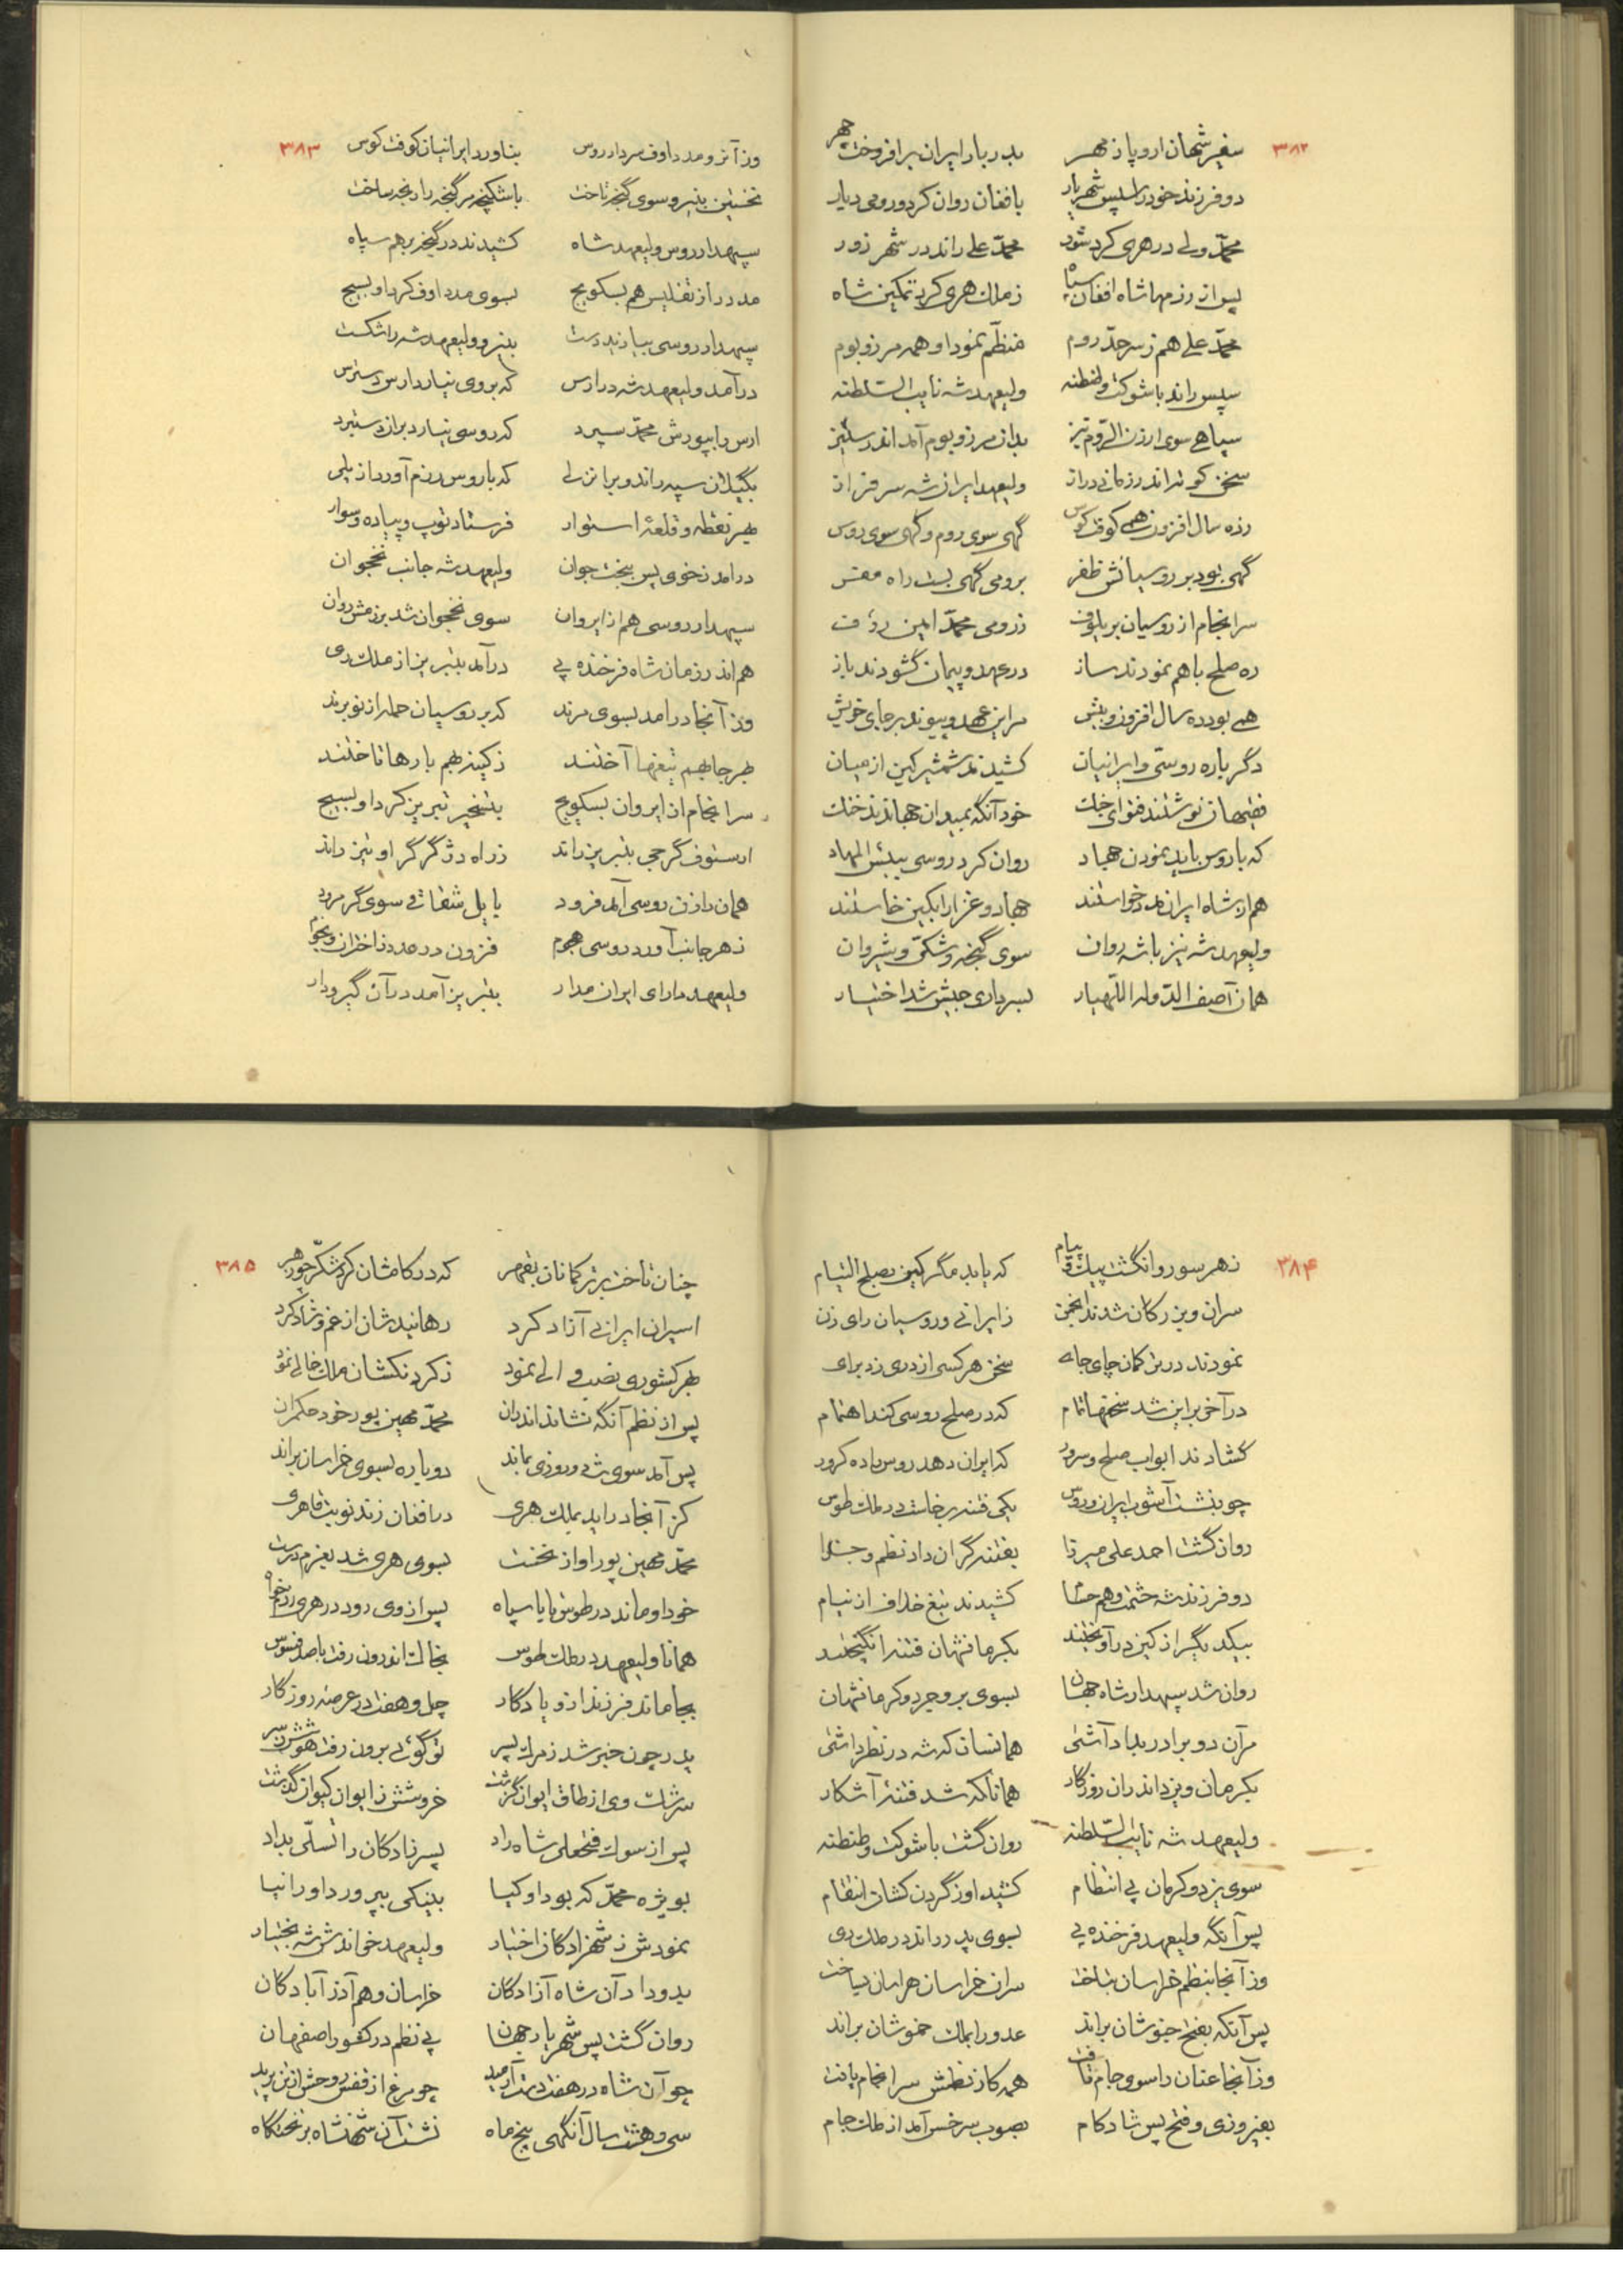 ۳۸۲
سفیر شهان اروپا ز مهر بدربار ایران برافروخت چهر
دو فرزند خود را سپس شهریار بافغان روان کرد و رومی دیار
محمّد ولی در هری کرد شور محمّد علی راند در شهر زور
پس از رزمها شاه افغان سپاه ز ملک هری کرد تمکین شاه
محمّد علی هم ز سرحدّ روم منظّم نمود او همه مرز و بوم
سپس راند با شوکت و طنطنه ولیعهد شه نایب السّلطنه
سپاهی سوی ارزن الرّوم نیز بدان مرز و بوم آمد اندر ستیز
سخن کوته اندر زمانی دراز ولیعهد ایران شه سرفراز
ز ده سال افزون همی کوفت کوس گهی سوی روم و گهی سوی روس
گهی بود بر روسیانش ظفر برومی گهی بست راه مفر
سرانجام از روسیان یرملوف ز رومی محمّد امین رؤف
ره صلح با هم نمودند ساز در عهد و پیمان گشودند باز
همی بود ده سال افزون و بیش مر این عهد و پیوند بر جای خویش
دگرباره روسی و ایرانیان کشیدند شمشیر کین از میان
فقیهان نوشتند فتوای جنگ خود آنگه بمیدان جهاندند خنگ
که با روس باید نمودن جهاد روان کرد روسی ببئس المهاد
هم از شاه ایران مدد خواستند جهاد و غزا را بکین خاستند
ولیعهد شه نیز با شه روان سوی گنجه و شکّی و شیروان
همان آصف الدّوله اللّهیار بسرداری جیش شد اختیار
۳۸۳
وز آنرو مدداوف سردار روس بناورد ایرانیان کوفت کوس
نخستین بنیرو سوی گنجه تاخت باشکنجه مر گنجه را رنجه ساخت
سپهدار روس و ولیعهد شاه کشیدند در گنجه بر هم سپاه
مدد در از تفلیس هم بسکویج بسوی مدداوف کرد او بسیج
سپهدار روسی بیازید دست بنیرو ولیعهد شه را شکست
درآمد ولیعهد شه در ارس که بر وی نیارد ارس دسترس
ارس را بپورش محمّد سپرد که روسی نیارد بران دستبرد
بگیلان سپه راند و بر انزلی که با روس رزم آورد از یلی
بهر نقطه و قلعهٔ استوار فرستاد توپ و پیاده و سوار
درآمد ز خوی پس بیخت جوان ولیعهد شه جانب نخجوان
سپهدار روسی هم از ایروان سوی نخجوان شد برزمش روان
هم اندر زمان شاه فرخنده پی درآمد بتبریز از ملک ری
وز آنجا درآمد بسوی مرند که بر روسیان حمله از نو برند
بهر جا بهم تیغها آختند ز کینه بهم بارها تاختند
سرانجام از ایروان بسکویج بتسخیر تبریز کرد او بسیج
ارستوف گرجی بتبریز راند ز راه دژ گرگر او نیز راند
همان رازن روسی آمد فرود با پل شفاتی سوی گرمرود
ز هر جانب آورد روسی هجوم فزون در عدد ز اختران و نجوم
ولیعهد دارای ایران مدار بتبریز آمد در آن گیر و دار
۳۸۴
ز هر سو روان گشت پیک و پیام که باید مگر کین بصلح التیام
سران و بزرگان شدند انجمن ز ایرانی و روسیان رای زن
نمودند در ترکمان چای جای سخن هر کسی از دری زد برای
در آخر بر این شد سخنها تمام که در صلح روسی کند اهتمام
گشادند ابواب صلح و سرور که ایران دهد روس را ده کرور
چو بنشست آشوب ایران و روس یکی فتنه برخاست در ملک طوس
روان گشت احمد علی میرزا بفتنه گران داد نظم و جزا
دو فرزند شه حشمت و هم حسام کشیدند تیغ خلاف از نیام
بیکدیگر از کین درآویختند بکرمانشهان فتنه انگیختند
روان شد سپهدار شاه جهان بسوی بروجرد و کرمانشهان
مر آن دو برادر بداد آشتی همانسان که شه در نظر داشتی
بکرمان و یزد اندران روزگار همانا که شد فتنهٔ آشکار
ولیعهد شه نایب السّلطنه روان گشت با شوکت و طنطنه
سوی یزد و کرمان پی انتظام کشید او ز گردن کشان انتقام
پس آنگه ولیعهد فرخنده پی بسوی پدر راند در ملک ری
وز آنجا بنظم خراسان شتافت سران خراسان هراسان بیافت
پس آنکه بفتح خبوشان براند عدو را بملک خموشان براند
وز آنجا عنان را سوی جام تافت همه کار نظمش سرانجام یافت
بفیروزی و فتح پس شادکام بصوب سرخس آمد از ملک جام
۳۸۵
چنان تاخت بر ترکمانان بقهر که در کامشان کرد شکّر چو زهر
اسیران ایرانی آزاد کرد رهانیدشان از غم و شاد کرد
بهر کشوری نصب والی نمود ز گردنکشان ملک خالی نمود
پس از نظم آنگه نشاند اندران محمّد مهین پور خود حکمران
پس آمد سوی ری و روزی بماند دوباره بسوی خراسان براند
کز آنجا درآید بملک هری در افغان زند نوبت قاهری
محمّد مهین پور او از نخست بسوی هری شد بعزم درست
خود او ماند در طوس با یا سپاه پس از وی رود در هری رزمخواه
همانا ولیعهد در ملک طوس بخاک اندرون رفت با صد فسوس
بجا ماند فرزند ازو یادگار چل و هفت در عرصه روزگار
پدر چون خبر شد ز مرگ پسر تو گوئی برون رفت هوشش ز سر
سرشک وی از طاق ایوان گذشت خروشش ز ایوان کیوان گذشت
پس از سوک فتحعلی شاه راد پسرزادگان را تسلّی بداد
بویژه محمّد که بود او کیا بنیکی بپرورد او را نیا
نمودش ز شهزادگان اختیار ولیعهد خواندش شه بختیار
بدو داد آن شاه آزادگان خراسان و هم آذرآبادگان
روان گشت پس شهریار جهان پی نظم در کشور اصفهان
چو آن شاه در هفت دست آرمید چو مرغ از قفس روحش از تن پرید
سی و هشت سال آنگهی پنج ماه نشست آن شهنشاه بر تختگاه